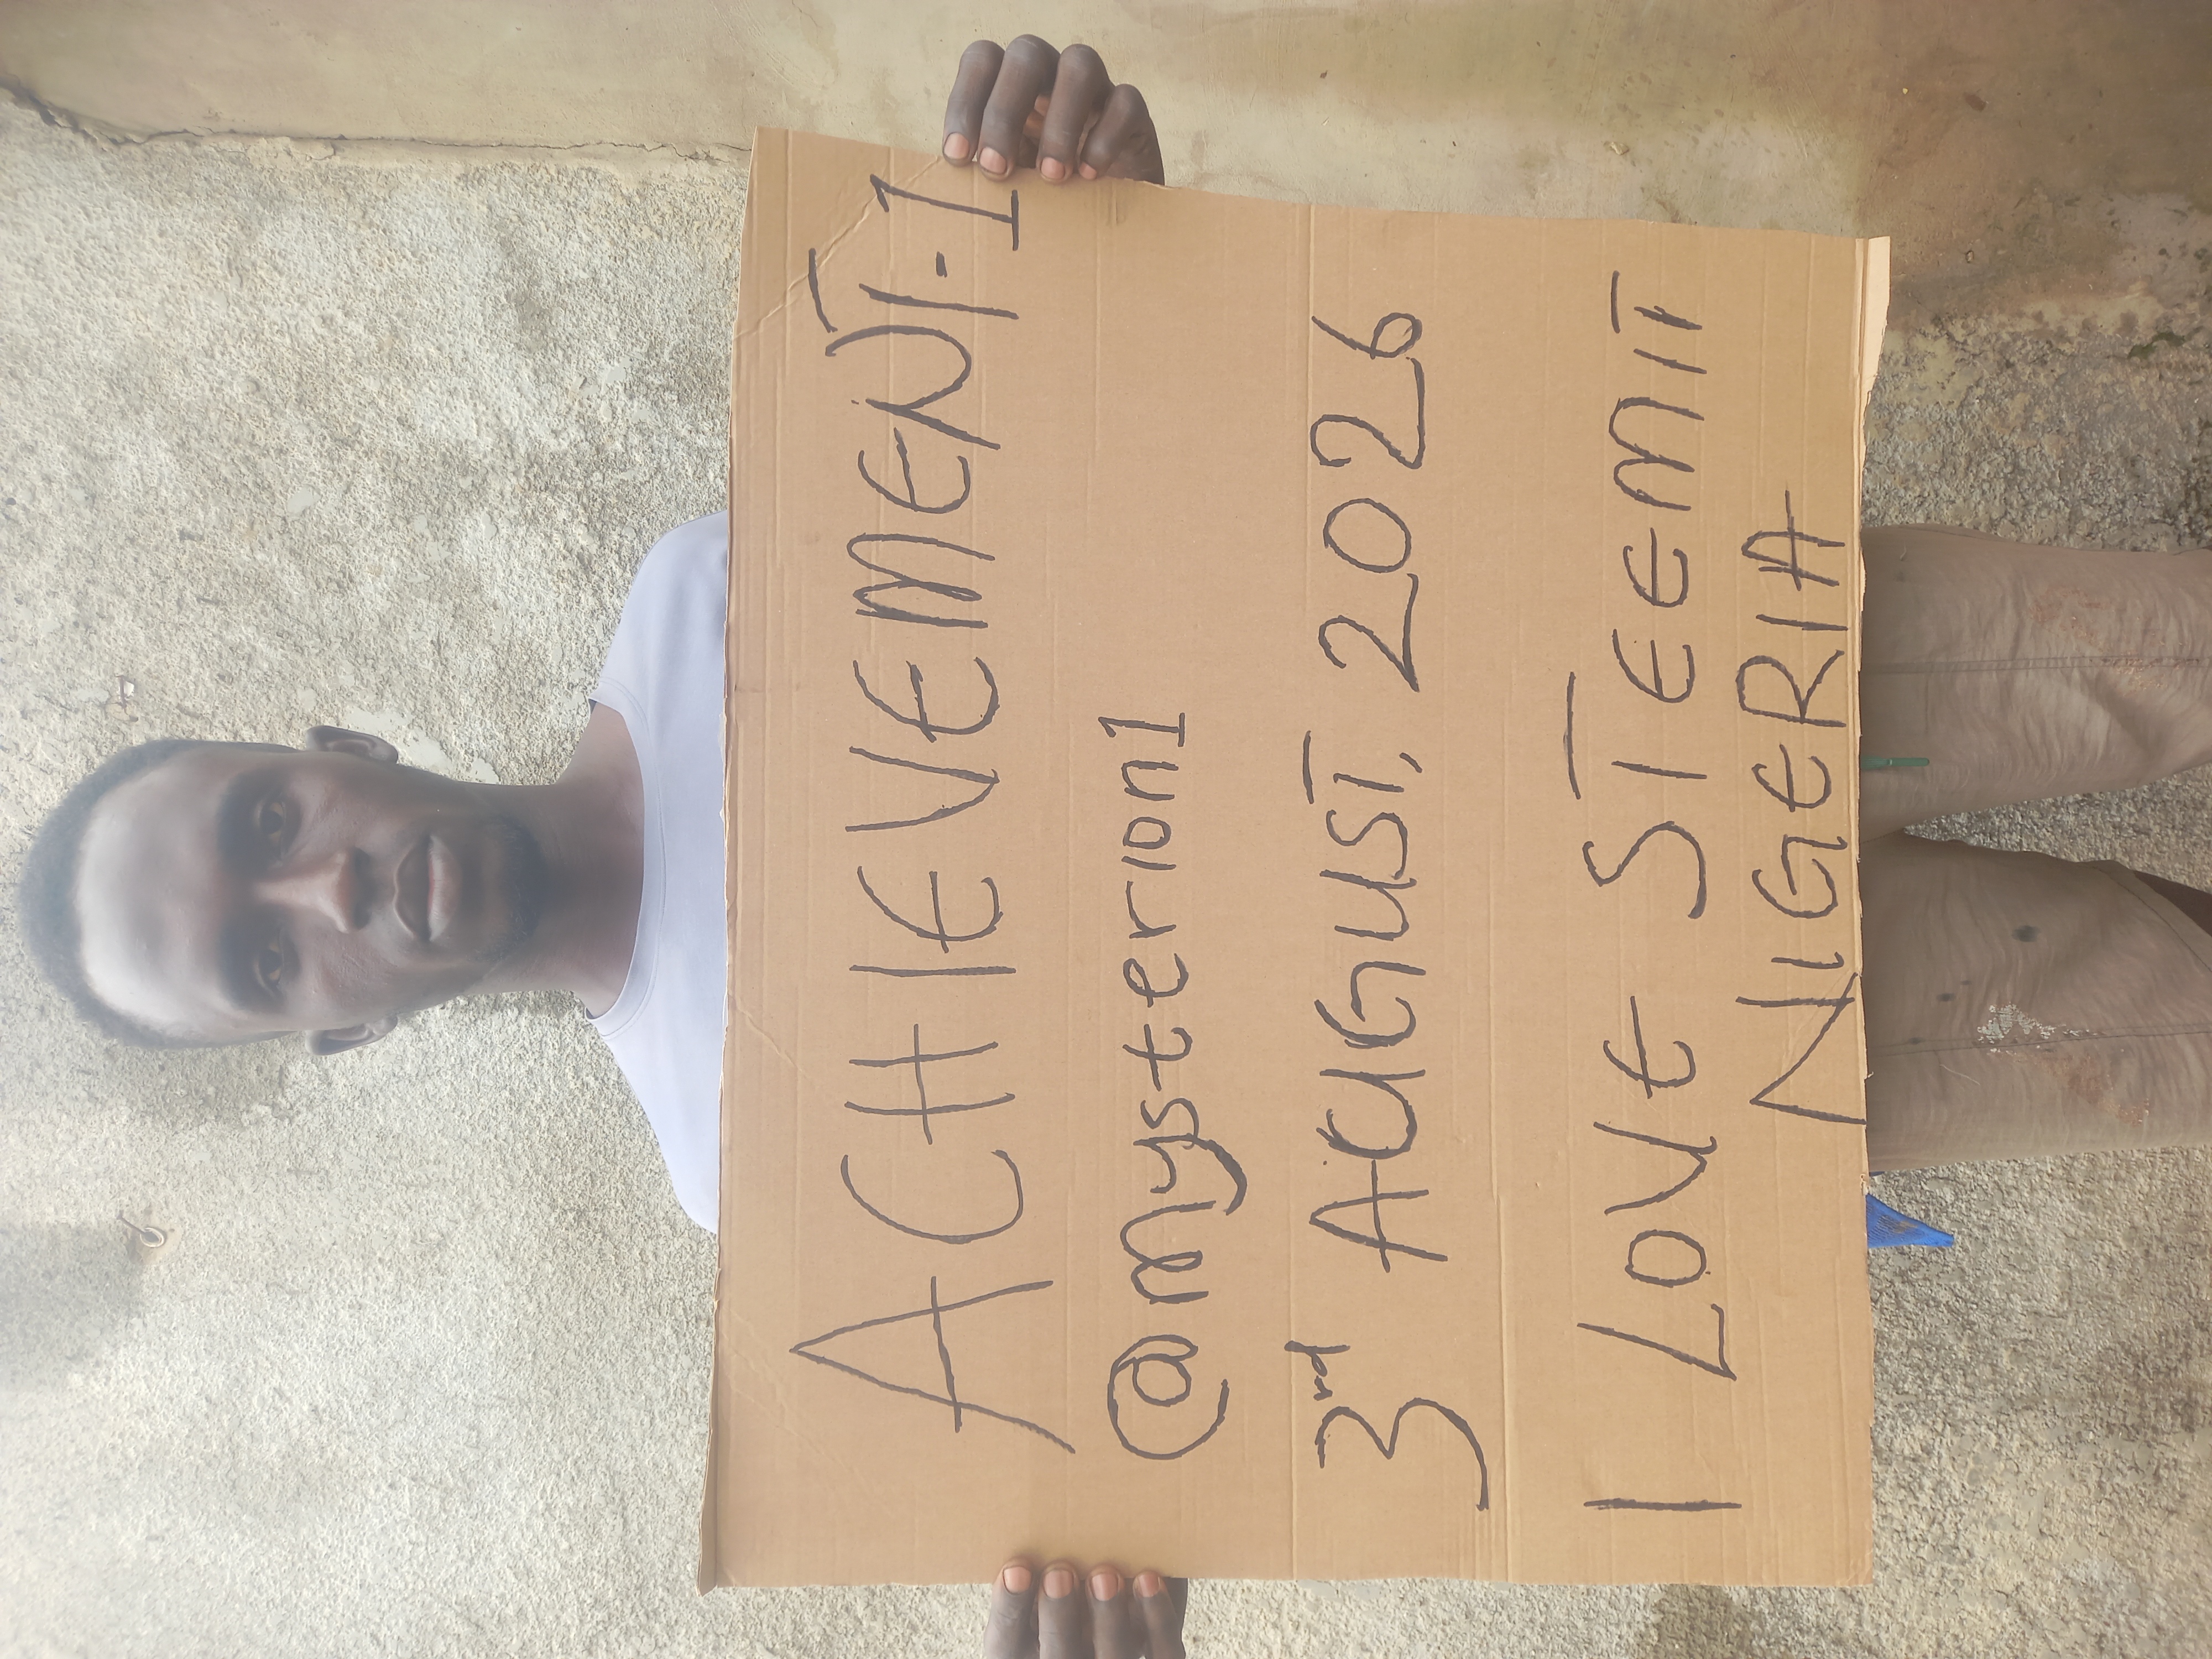 ACHIEVEMENT-1
@mysterion1
3rd AUGUST, 2026
I LOVE STEEMIT
NIGERIA